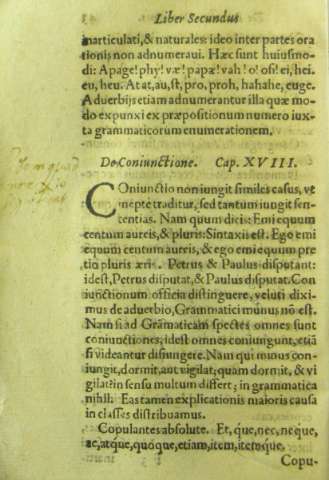 Liber Secundus
inarticulati, & naturales: ideo inter partes ora
tionis non adnumeraui. Hæc sunt huiusmo-
di: Apage! phy! væ! papæ! vah! o! osi! ei, hei.
eu, heu. At at, au, st, pro, proh, hahahe, euge.
Aduerbijs etiam adnumerantur illa quæ mo-
do expunxi ex præpositionum numero iux-
ta grammaticorum enumerationem.
De Coniunctione. Cap. XVIII.
COniunctio non iungit similes casus, vt
inepte traditur, sed tantum iungit sen-
tentias. Nam quum dicis: Emi equum
centum aureis, & pluris: Sintaxis est. Ego emi
equum centum aureis, & ego emi equum pre
tio pluris æris. Petrus & Paulus disputant:
id est, Petrus disputat, & Paulus disputat. Con
iunctionum officia distinguere, veluti dixi-
mus de aduerbio, Grammatici munus nō est.
Nam si ad Grāmaticam spectes omnes sunt
coniunctiones, idest omnes coniungunt, etiā
si videantur disiungere. Nam qui minus con-
iungit, dormit, aut vigilat; quam dormit, & vi
gilat? in sensu multum differt; in grammatica
nihil. Eas tamen explicationis maioris causa
in classes distribuamus.
Copulantes absolute. Et, que, nec, neque,
ac, atque, quoque, etiam, item, itemque.
Copu-